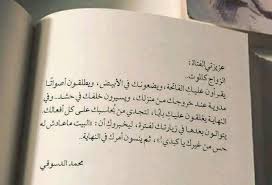 عزيزتي الفتاة:
الزواج كالموت..
يقرأون عليك الفاتحة، ويضعونك في الأبيض، ويطلقون أصواتًا
مدوية عند خروجك من منزلك، ويسيرون خلفك في حشد.. وفي
النهاية يغلقون عليك بابًا، لتجدي من يحاسبك على كل أفعالك.
يتوالون بعدها في زيارتك لفترة، ليخبروكِ أن: «البيت ماعادش له
حس من غيرك يا كبدي!»، ثم ينسون أمرك في النهاية.
محمد الدسوقي